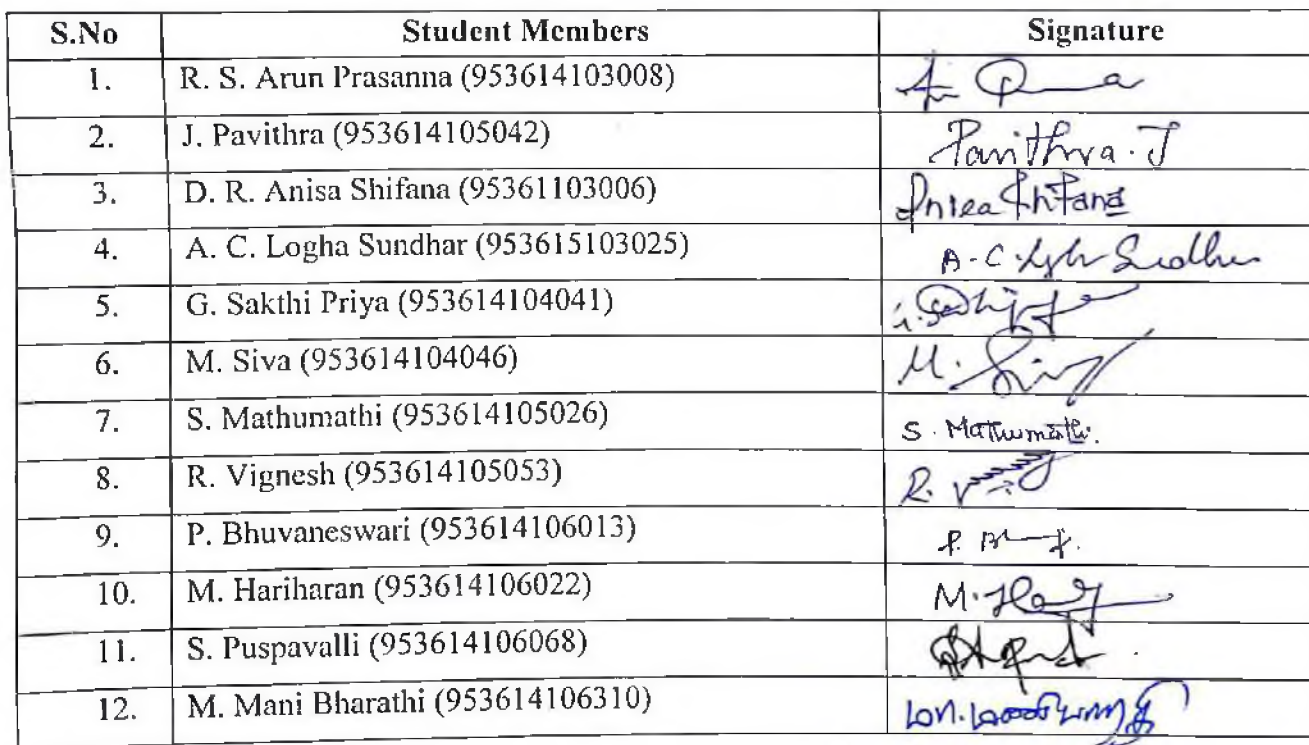 S.No Student Members Signature
1. R. S. Arun Prasanna (953614103008)
2. J. Pavithra (953614105042) Pavithra. J
3. D. R. Anisa Shifana (95361103006) Anisa Shifana
4. A. C. Logha Sundhar (953615103025) A. C.
5. G. Sakthi Priya (953614104041)
6. M. Siva (953614104046) M. Siva
7. S. Mathumathi (953614105026) S. Mathumathi.
8. R. Vignesh (953614105053) R.
9. P. Bhuvaneswari (953614106013) P.
10. M. Hariharan (953614106022) M.
11. S. Puspavalli (953614106068)
12. M. Mani Bharathi (953614106310) மா. மணிபாரதி